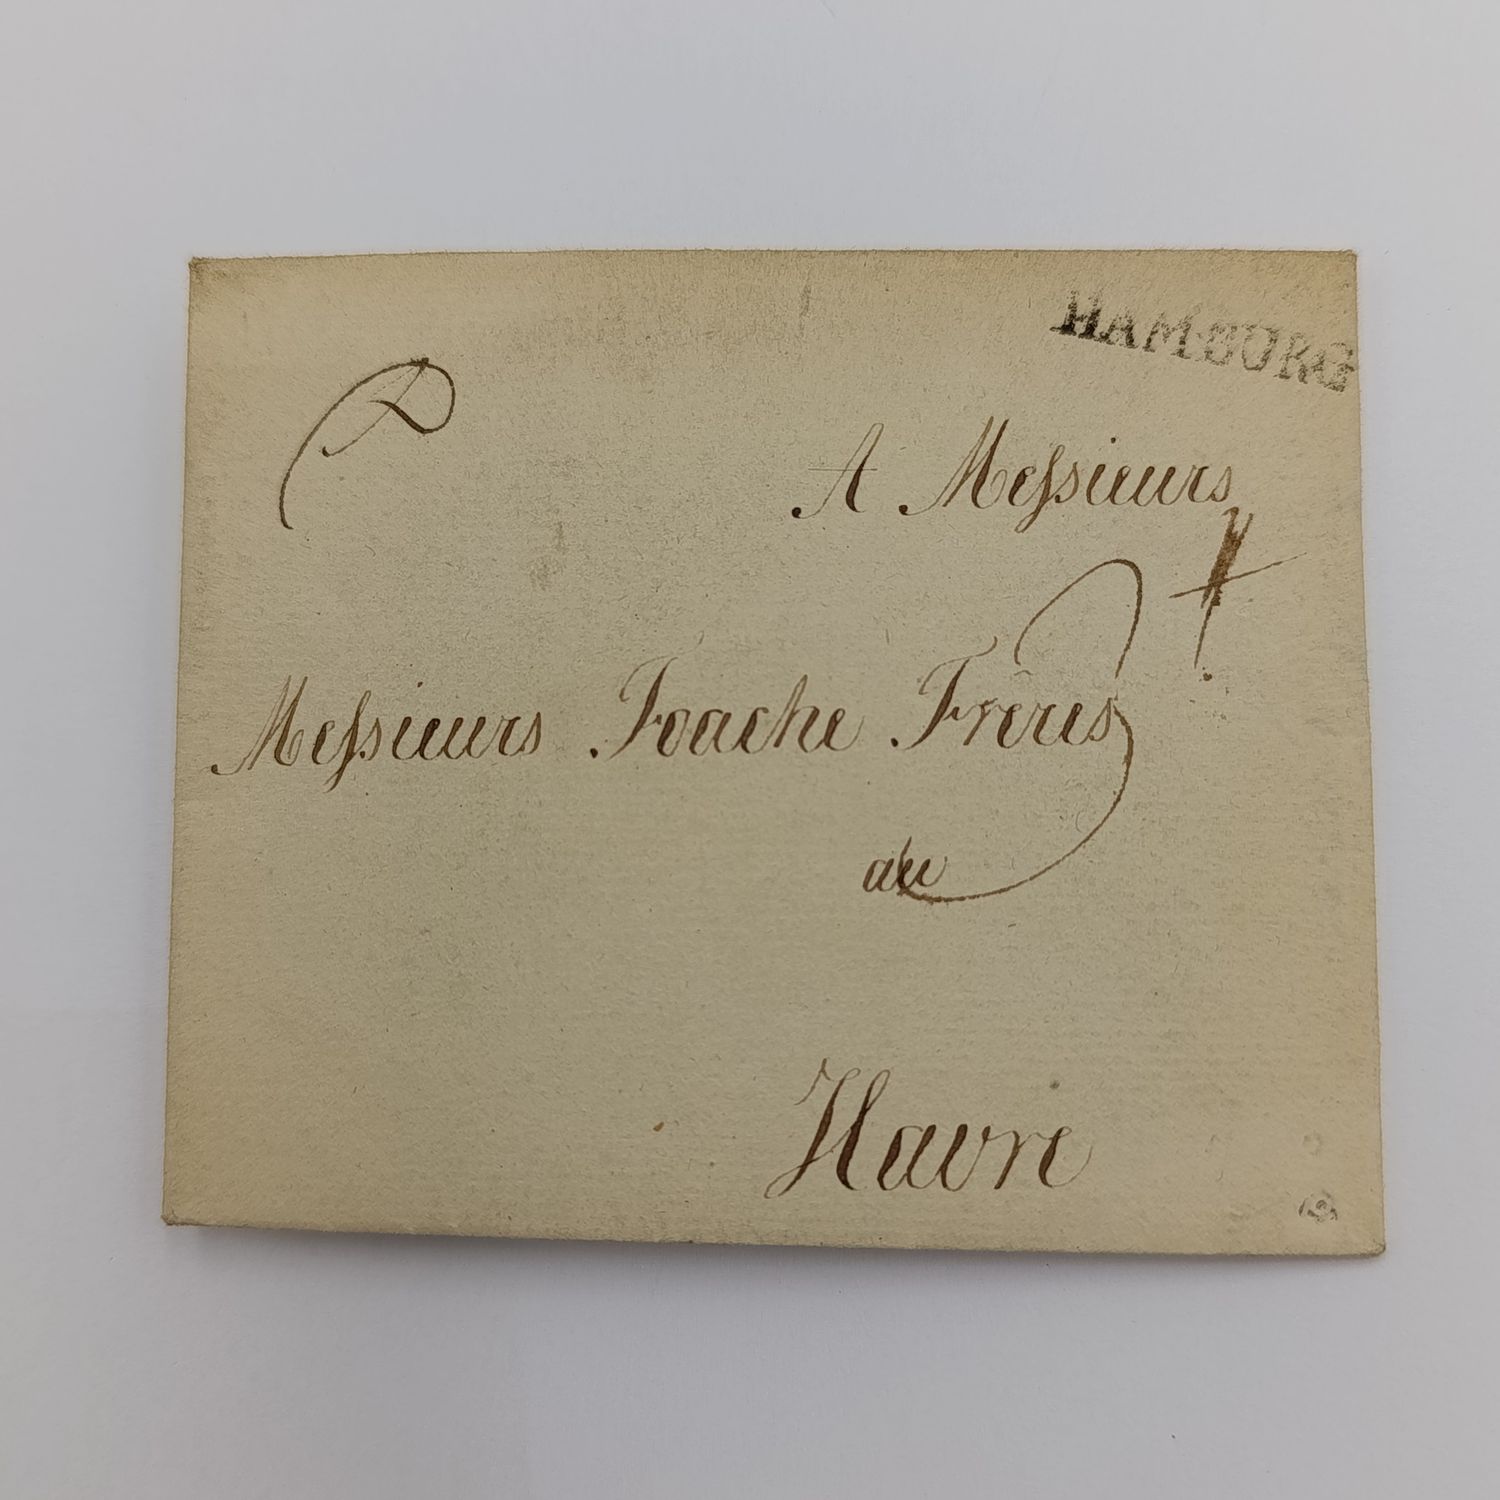 HAMBURG
A Meſsieurs
Meſsieurs Foache Frères
au
Havre